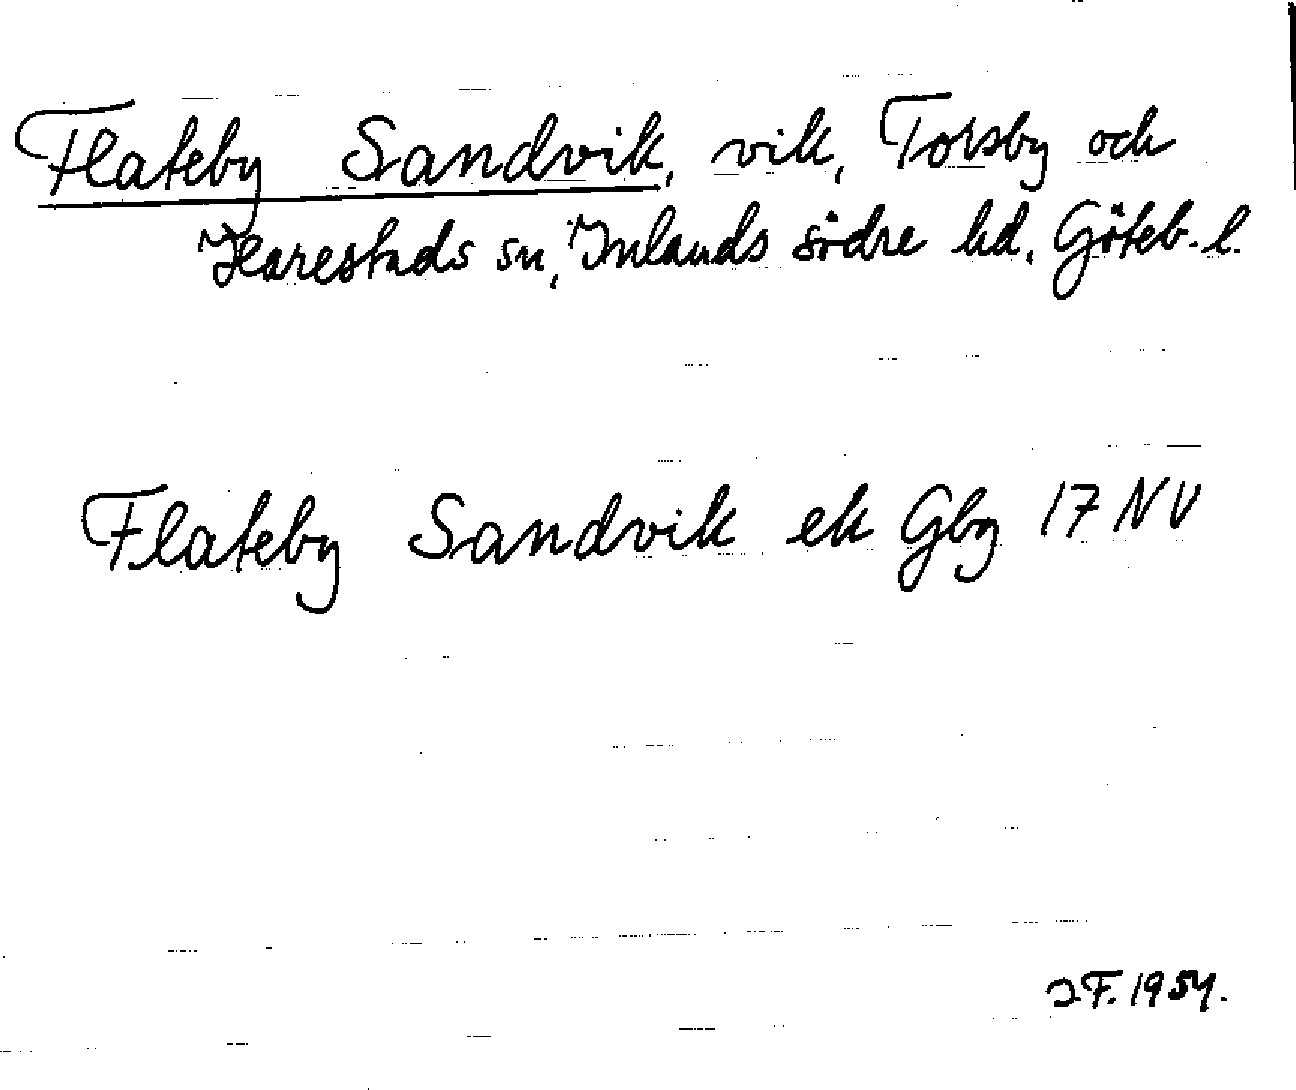 Flateby Sandvik, vik, Torsby och
Harestads sn, Inlands södre hd, Göteb. l.
Flateby Sandvik ek Gbg 17 NV
J.F. 1954.